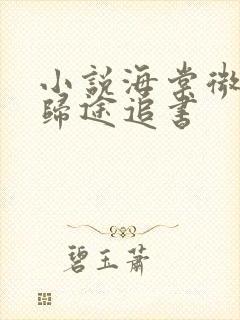 小說海棠微
歸途追書
碧玉蕭